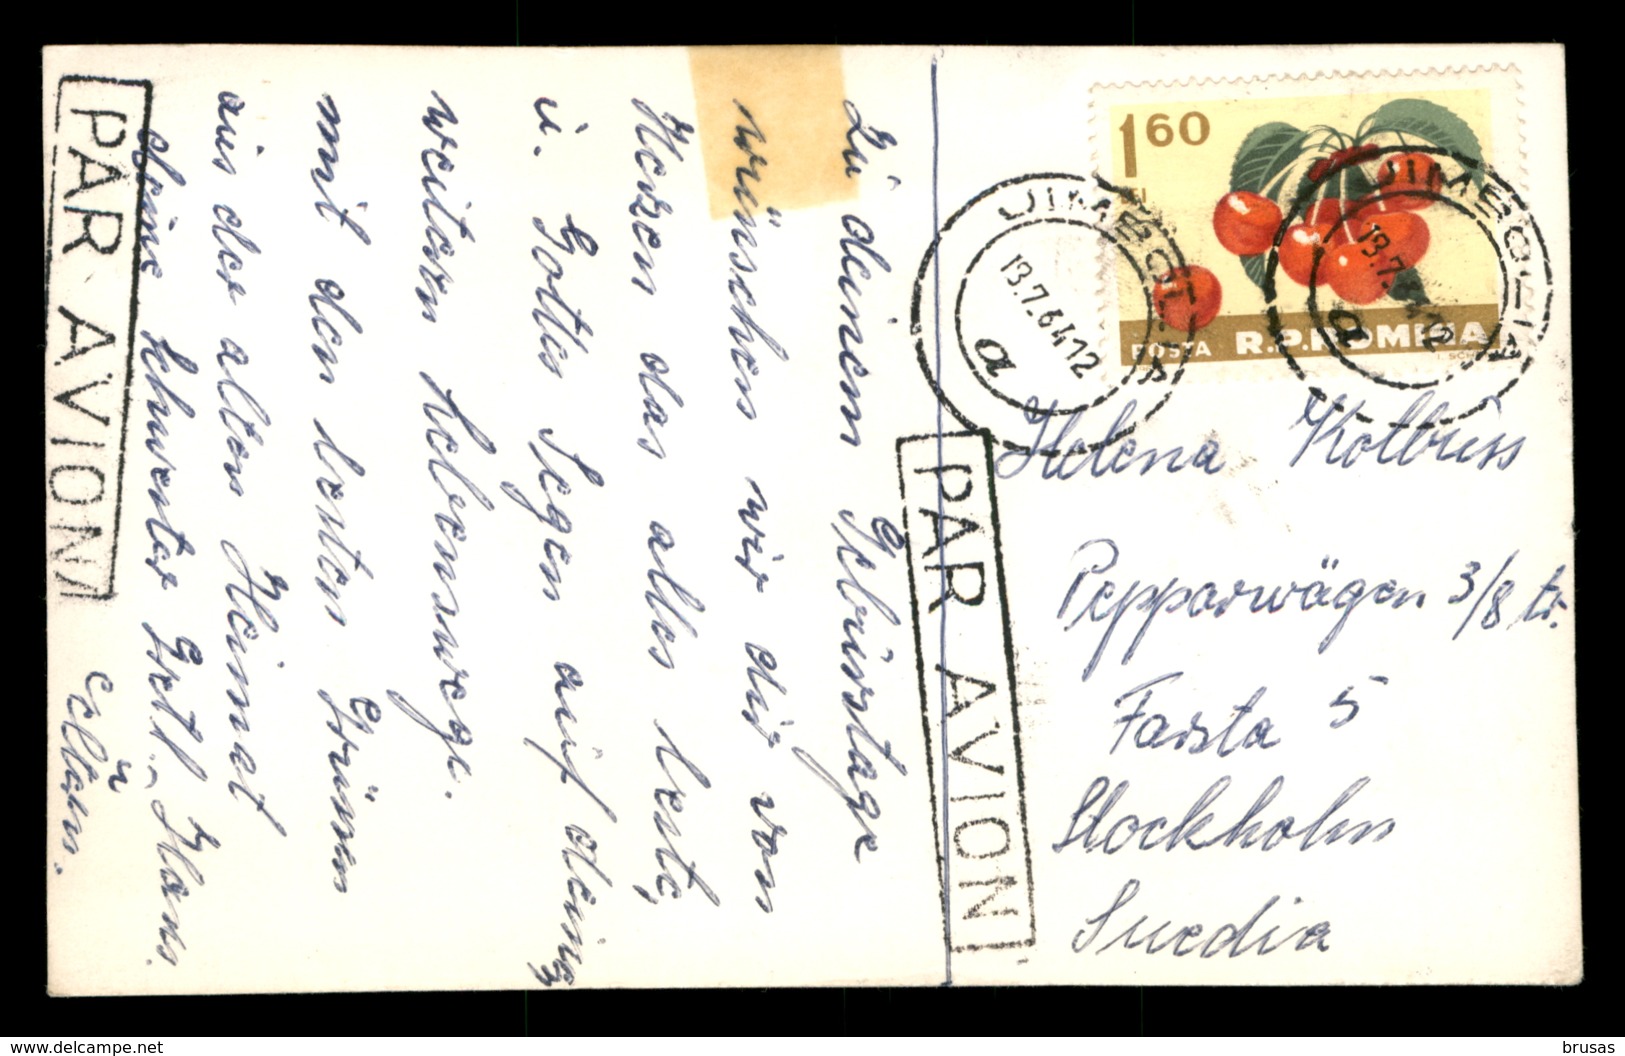 Zu deinem Gebürstage
wünschen wir dir von
Herzen das alles beste,
u. Gottes Segen auf deinen
weitern Lebenswege.
mit den besten Grüssen
aus der alten Heimat
deine Schwester Gretl. Hans
PAR AVION
1 60
LEI
POSTA R.P.ROMINA
JIMBOLIA
13.7.64.12
a
JIMBOLIA
13.7.64.12
a
PAR AVION
Helena Kolbuss
Pepparvägen 3/8 tr.
Farsta 5
Stockholm
Suedia
www.delcampe.net
brusas